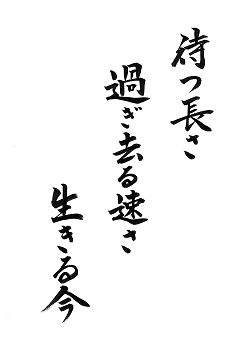 待つ長さ
過ぎ去る速さ
生きる今